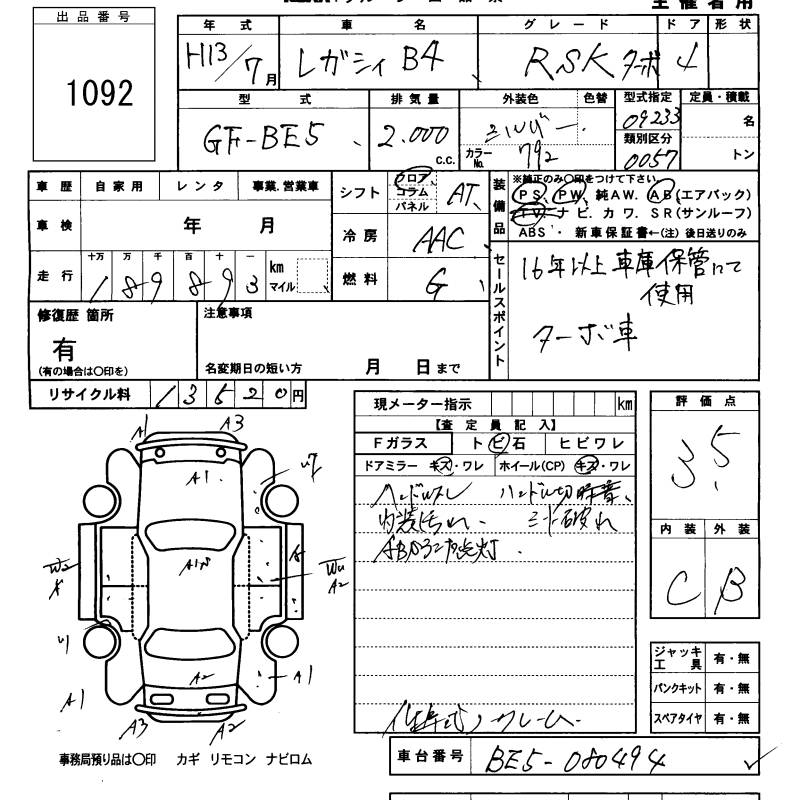 主催者用
出品番号
1092
年式 車名 グレード ドア 形状
H13/7月 レガシィ B4 RSK ターボ 4
型式 排気量 外装色 色替 型式指定 定員・積載
GF-BE5 2.000 c.c. シルバー 09233 名
カラーNo. 792 類別区分 0057 トン
車歴 自家用 レンタ 事業.営業車
シフト フロア コラム パネル AT
装備品
※純正のみ〇印をつけて下さい。
PS、PW、純AW. AB(エアバック)
TV ナビ. カワ. SR(サンルーフ)
ABS・ 新車保証書←(注) 後日送りのみ
車検 年 月
冷房 AAC
走行 十万 万 千 百 十 一
189893 km マイル
燃料 G
セールスポイント
16年以上車庫保管にて
使用
ターボ車
修復歴 箇所
有
(有の場合は〇印を)
注意事項
名変期日の短い方 月 日まで
リサイクル料 13520円
現メーター指示 km
【査定員記入】
Fガラス トビ石 ヒビワレ
ドアミラー キズ・ワレ ホイール(CP) キズ・ワレ
ハンドルスレ ハンドル切時音、
内装汚れ、 シート破れ
評価点
3.5
内装 外装
C B
A1 A3
A1
A1
A2
A1 A1
A2
A3 A2
ジャッキ工具 有・無
パンクキット 有・無
スペアタイヤ 有・無
事務局預り品は〇印 カギ リモコン ナビロム
車台番号 BE5-080494